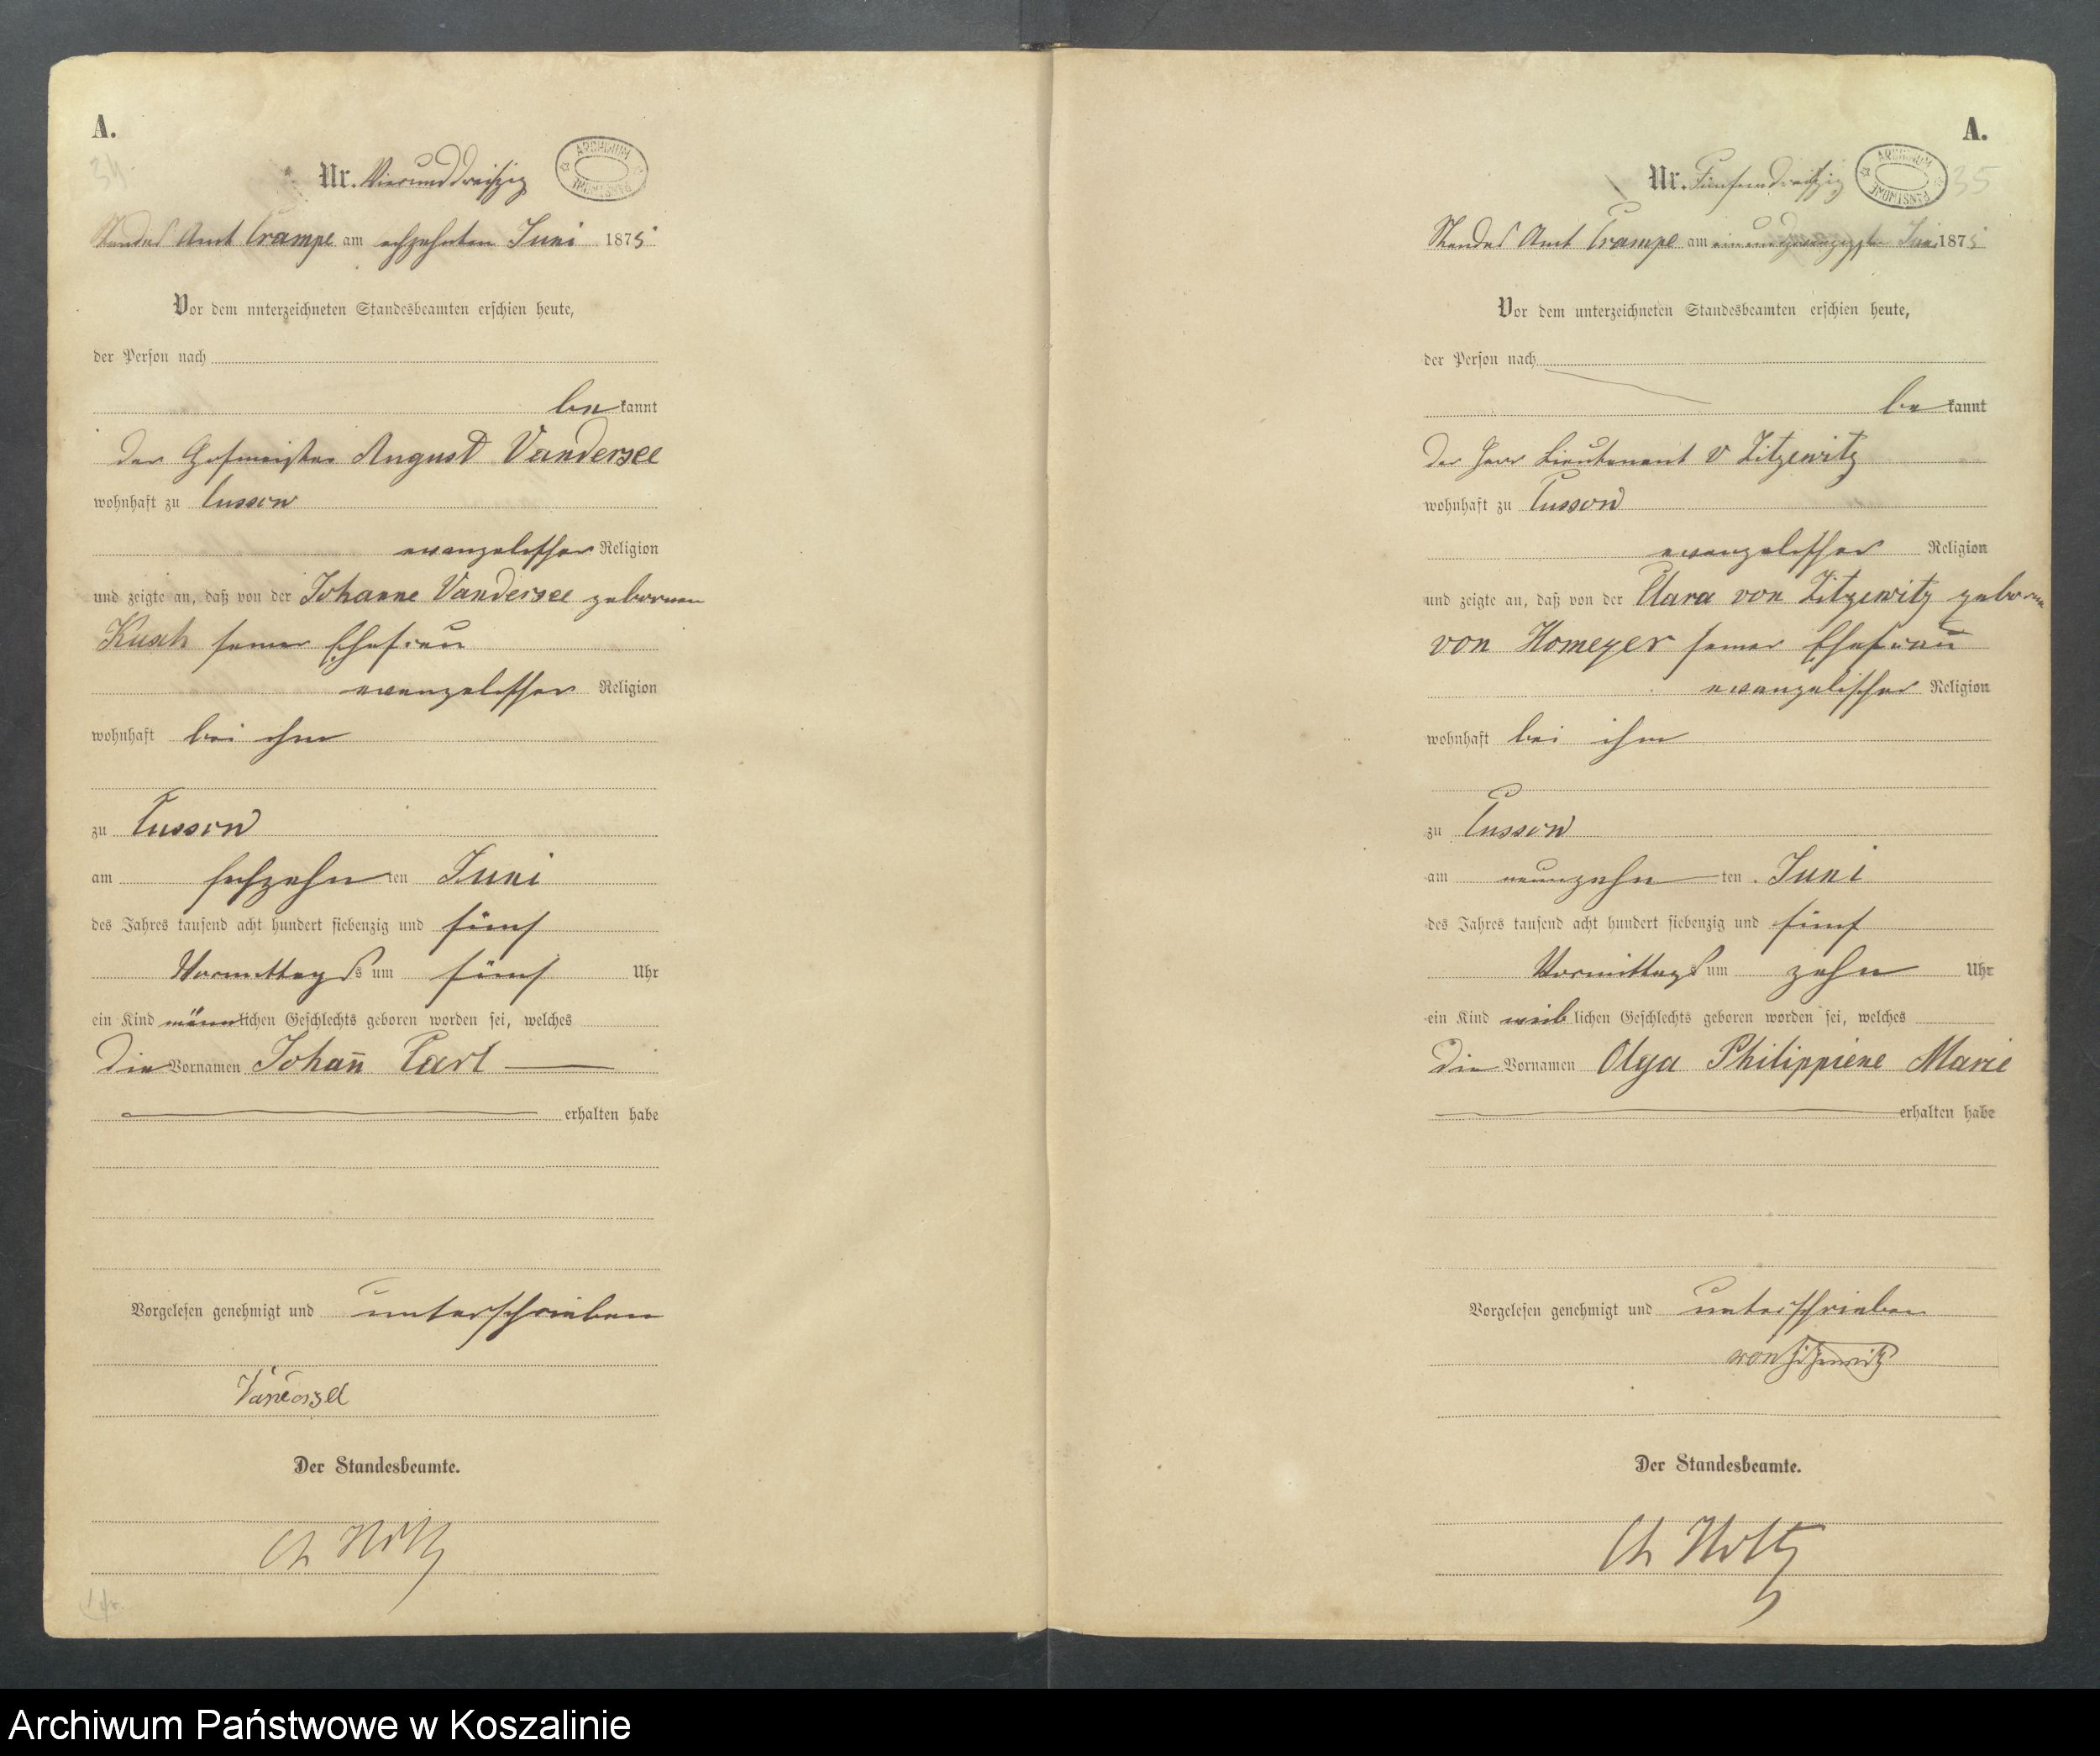 A.
34.
Nr. Vierunddreißig
ARCHIWUM PAŃSTWOWE
Standes Amt Crampe am achzehnten Juni 1875
Vor dem unterzeichneten Standesbeamten erschien heute,
der Person nach
be kannt
der Hofmeister August Vandersee
wohnhaft zu Cussow
evangelischer Religion
und zeigte an, daß von der Johanne Vandersee gebornen
Kusch seiner Ehefrau
evangelischer Religion
wohnhaft bei ihm
zu Cussow
am sechzehn ten Juni
des Jahres tausend acht hundert siebenzig und fünf
Vormittags um fünf Uhr
ein Kind männlichen Geschlechts geboren worden sei, welches
die Vornamen Johan̄ Carl
erhalten habe
Vorgelesen genehmigt und unterschrieben
Vandersee
Der Standesbeamte.
Ch Holtz
A.
Nr. Fünfunddreißig
ARCHIWUM PAŃSTWOWE
35
Standes Amt Crampe am einundzwanzigsten Juni 1875
Vor dem unterzeichneten Standesbeamten erschien heute,
der Person nach
be kannt
der Herr Lieutenant v Zitzewitz
wohnhaft zu Cussow
evangelischer Religion
und zeigte an, daß von der Clara von Zitzewitz geborne
von Homeyer seiner Ehefrau
evangelischer Religion
wohnhaft bei ihm
zu Cussow
am neunzehn ten Juni
des Jahres tausend acht hundert siebenzig und fünf
Vormittags um zehn Uhr
ein Kind weiblichen Geschlechts geboren worden sei, welches
die Vornamen Olga Philippiene Marie
erhalten habe
Vorgelesen genehmigt und unterschrieben
von Zitzewitz
Der Standesbeamte.
Ch Holtz
Archiwum Państwowe w Koszalinie